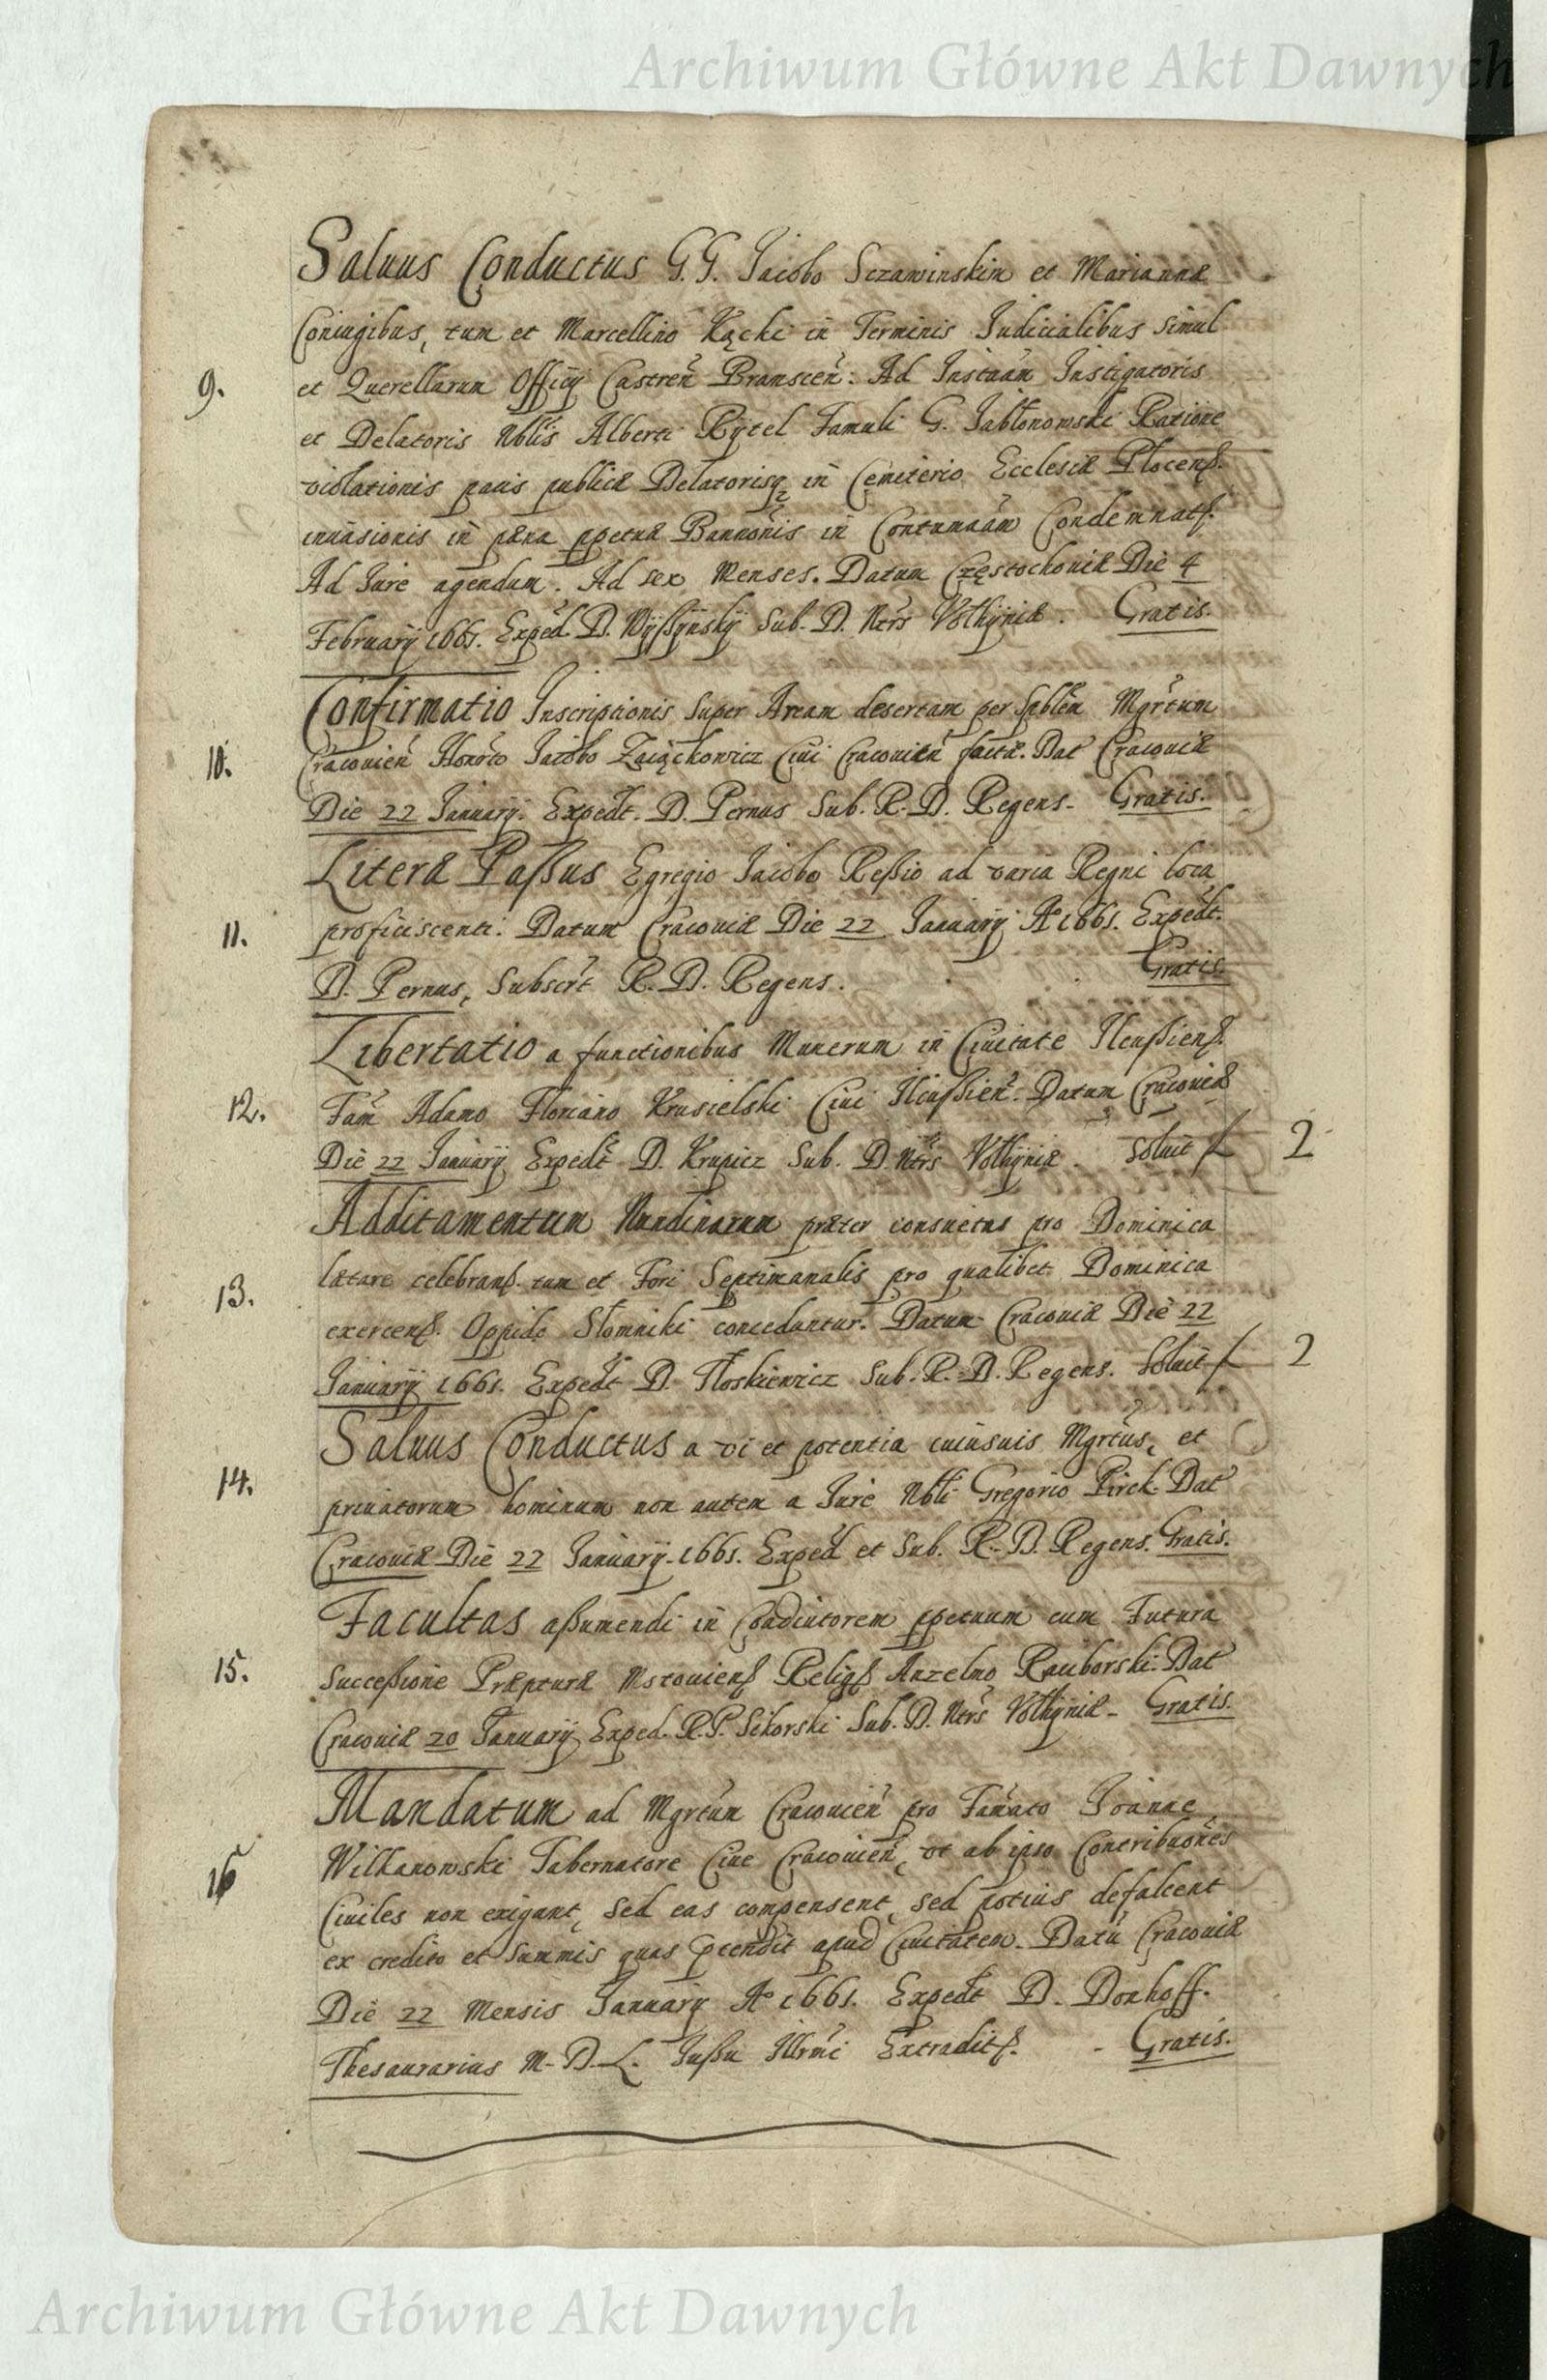 Archiwum Główne Akt Dawnych
Saluus Conductus G. G. Jacobo Sczawinskim et Mariannæ
Coniugibus, tum et Marcellino Kącki in Terminis Judicialibus simul
9. et Querellarum Officÿ Castreñ Bramsceñ: Ad Instaãm Instigatoris
et Delatoris Nblis Alberti Rÿtel Famuli G. Jabłonowski Ratione
violationis pacis publicæ Delatorisq in Cæmiterio Ecclesiæ Plocenß.
inuasionis in pæna ppetuæ Bannõnis in Contumaãm Condemnatß.
Ad Jure agendum. Ad sex Menses. Datum Częstochouiæ Die 4
Februarÿ 1661. Exped. D. Wÿßÿnskÿ Sub. D. Ntrs Volhÿniæ. Gratis.
Confirmatio Inscriptionis super Aream desertam per Spblem Mgrtum
10. Cracouieñ Honõto Jacobo Zaiączkowicz Ciui Cracouieñ factæ. Dat Cracouiæ
Die 22 Januarÿ. Expedt. D. Pernus Sub. R. D. Regens - Gratis.
Literæ Paßus Egregio Jacobo Reßio ad varia Regni loca
11. proficiscenti. Datum Cracouiæ Die 22 Januarÿ A° 1661. Expedt.
D. Pernus, Subscrt R. D. Regens. Gratis.
Libertatio a functionibus Munerum in Ciuitate Ilcußienß.
12. Fam Adamo Floriano Krusielski Ciui Ilcußieñ. Datum Cracouiæ
Die 22 Januarÿ Expedt D. Krupicz Sub. D. Ntrs Volhÿniæ. Soluit f 2
Additamentum Nundinarum præter consuetas pro Dominica
lætare celebranß. tum et Fori Septimanalis pro qualibet Dominica
13. exercenß. Oppido Słomniki conceduntur. Datum Cracouiæ Die 22
Januarÿ 1661. Expedt D. Floskiewicz Sub. R. D. Regens. Soluit f 2
Saluus Conductus a vi et potentia cuiusuis Mgrtus, et
14. priuatorum hominum non autem a Jure Nbli Gregorio Pirck. Dat
Cracouiæ Die 22 Januarÿ 1661. Exped et Sub. R. D. Regens. Gratis.
Facultas aßumendi in Coadiutorem ppetuum cum Futura
15. Succeßione Præpturæ Mstouienß Religß Anzelmo Raciborski. Dat
Cracouiæ 20 Januarÿ Exped. R. P. Sikorski Sub. D. Ntrs Volhÿniæ - Gratis.
Mandatum ad Mgrtum Cracouieñ pro Famato Joanne
16 Wilkanowski Tabernatore Ciue Cracouieñ, vt ab ipso Contribuõnes
Ciuiles non exigant, sed eas compensent, sed potius defalcent
ex credito et summis quas ptendit apud Ciuitatem. Datũ Cracouiæ
Die 22 Mensis Januarÿ A° 1661. Expedt D. Donhoff.
Thesaurarius M. D. L. Jußu Illrmi Extraditß. - Gratis.
Archiwum Główne Akt Dawnych